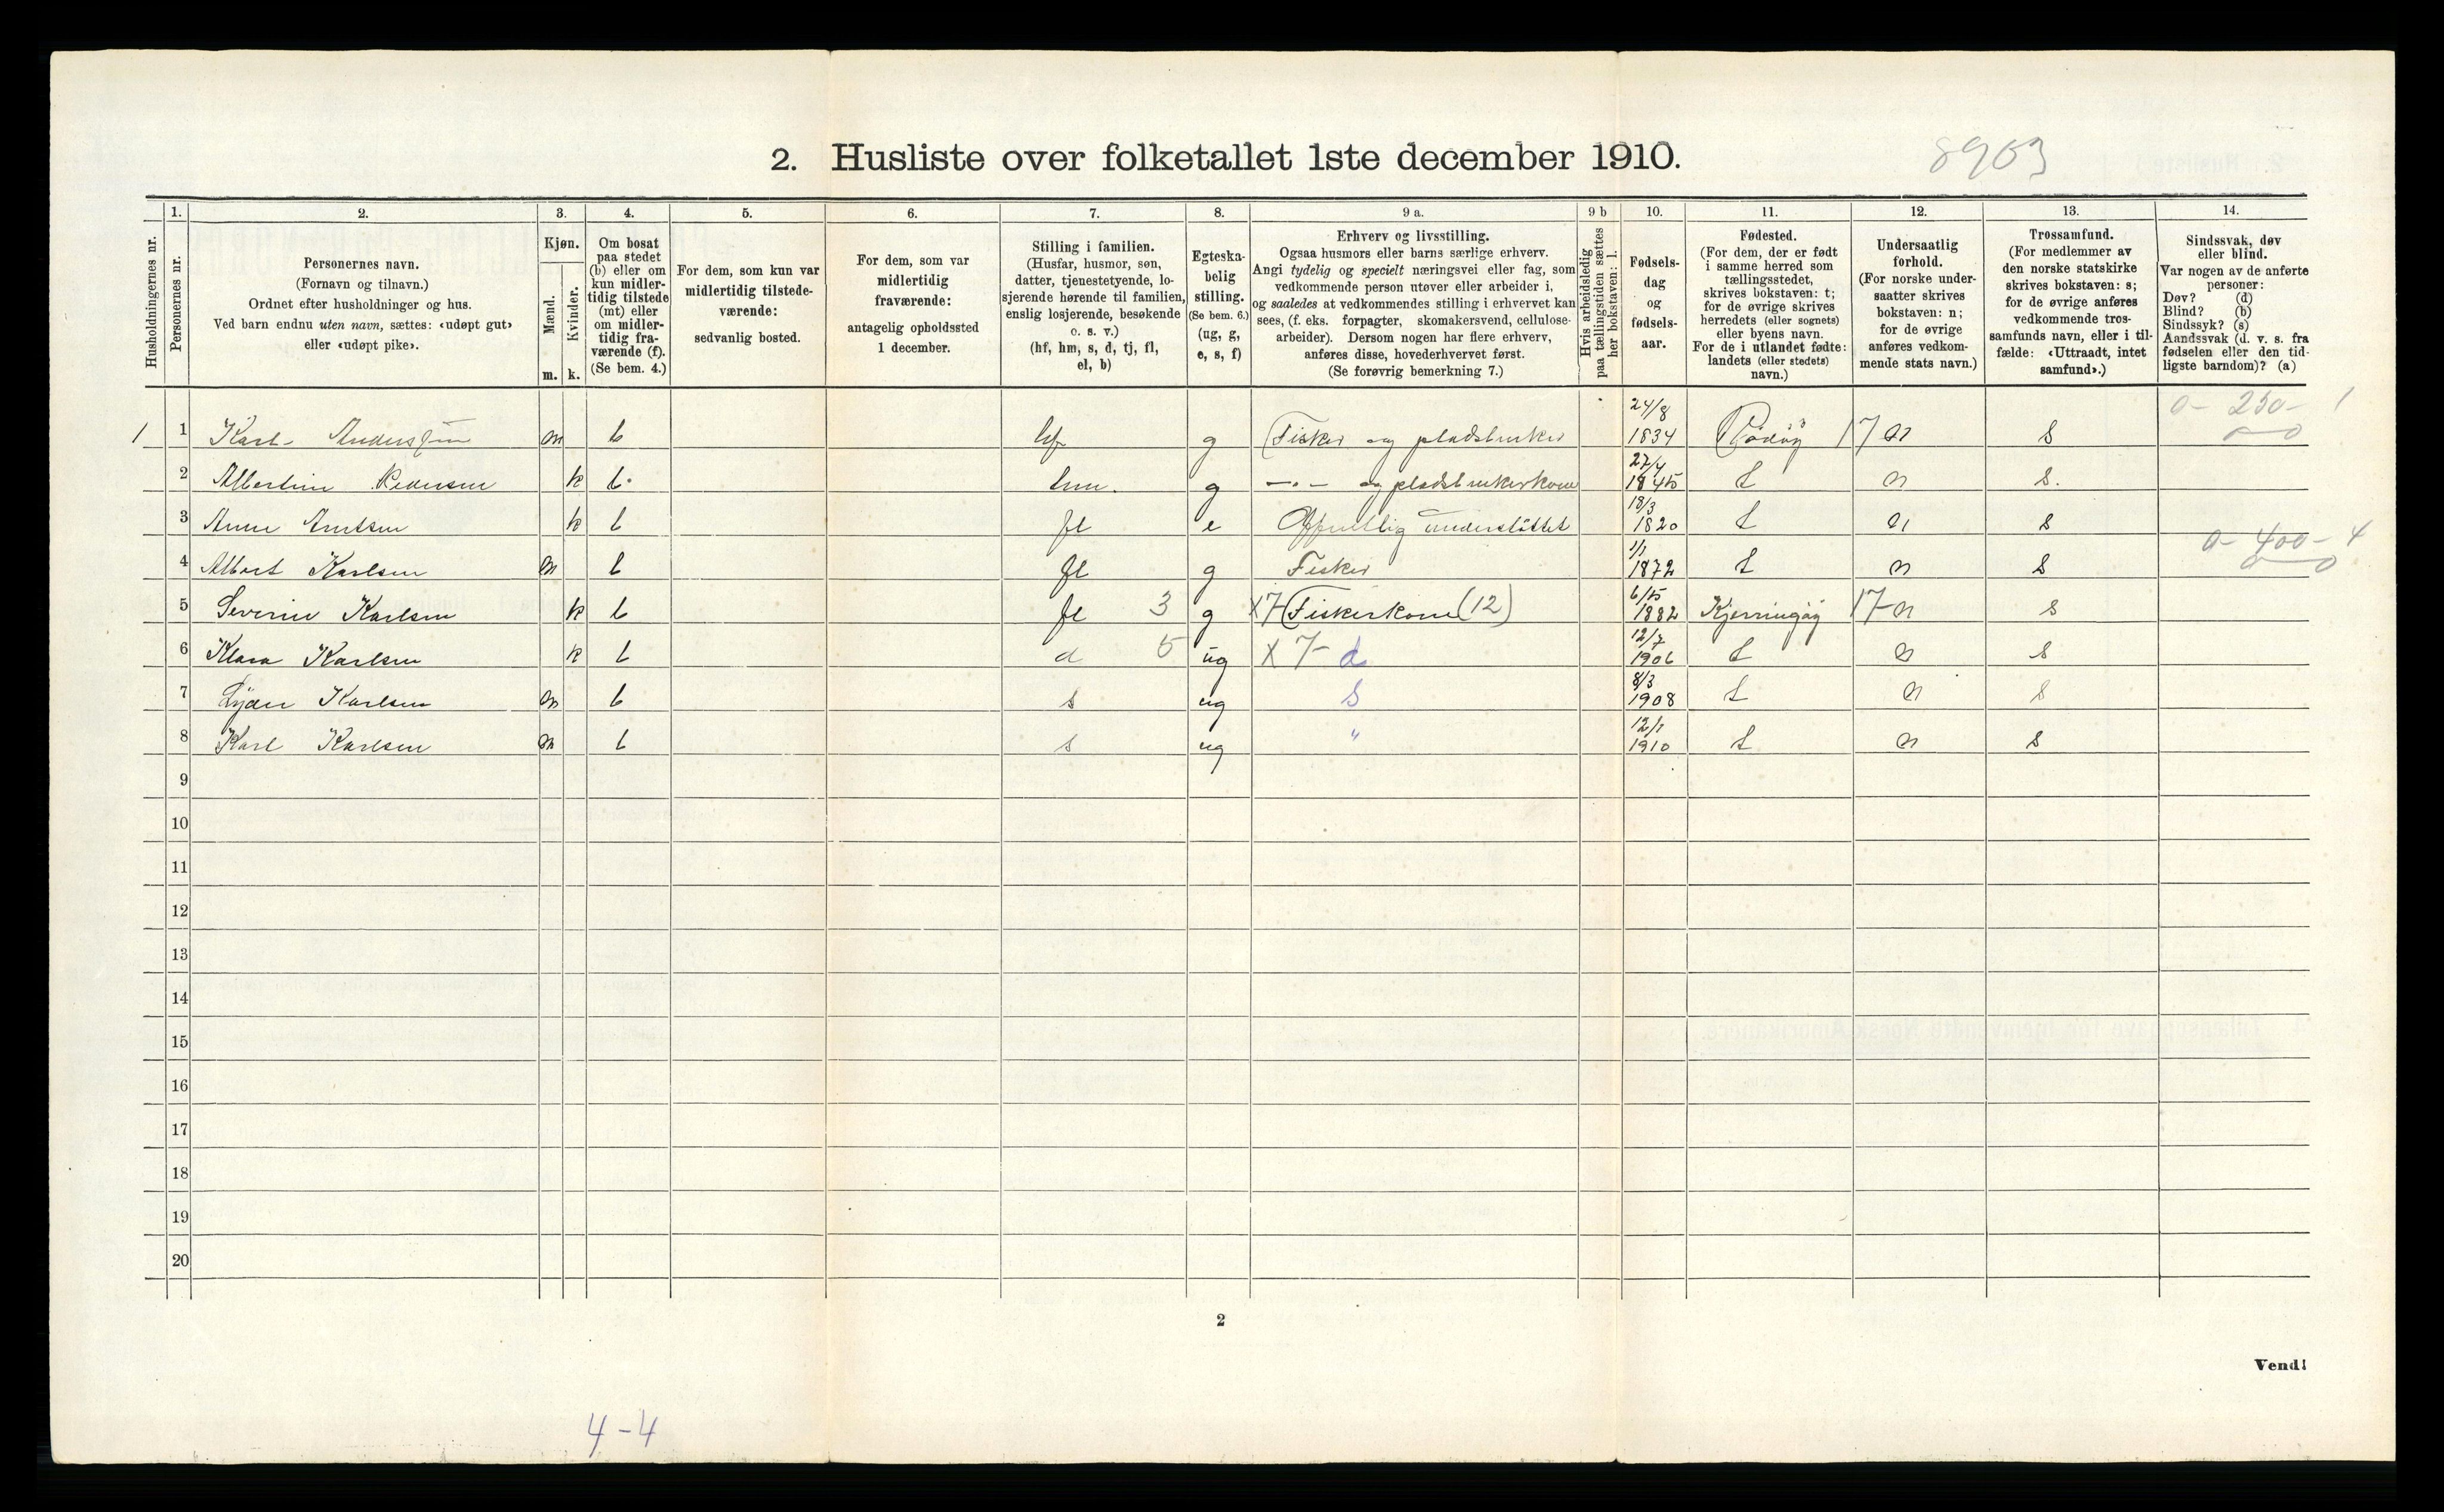 2. Husliste over folketallet 1ste december 1910.
8903
Husholdningernes nr.
1.
Personernes nr.
2.
Personernes navn.
(Fornavn og tilnavn.)
Ordnet efter husholdninger og hus.
Ved barn endnu uten navn, sættes: «udøpt gut»
eller «udøpt pike».
3.
Kjøn.
Mænd.
Kvinder.
m. k.
4.
Om bosat
paa stedet
(b) eller om
kun midler-
tidig tilstede
(mt) eller
om midler-
tidig fra-
værende (f).
(Se bem. 4.)
5.
For dem, som kun var
midlertidig tilstede-
værende:
sedvanlig bosted.
6.
For dem, som var
midlertidig
fraværende:
antagelig opholdssted
1 december.
7.
Stilling i familien.
(Husfar, husmor, søn,
datter, tjenestetyende, lo-
sjerende hørende til familien,
enslig losjerende, besøkende
o. s. v.)
(hf, hm, s, d, tj, fl,
el, b)
8.
Egteska-
belig
stilling.
(Se bem. 6.)
(ug, g,
e, s, f)
9 a.
Erhverv og livsstilling.
Ogsaa husmors eller barns særlige erhverv.
Angi tydelig og specielt næringsvei eller fag, som
vedkommende person utøver eller arbeider i,
og saaledes at vedkommendes stilling i erhvervet kan
sees, (f. eks. forpagter, skomakersvend, cellulose-
arbeider). Dersom nogen har flere erhverv,
anføres disse, hovederhvervet først.
(Se forøvrig bemerkning 7.)
9 b
Hvis arbeidsledig
paa tællingstiden sættes
her bokstaven: l.
10.
Fødsels-
dag
og
fødsels-
aar.
11.
Fødested.
(For dem, der er født
i samme herred som
tællingsstedet,
skrives bokstaven: t;
for de øvrige skrives
herredets (eller sognets)
eller byens navn.
For de i utlandet fødte:
landets (eller stedets)
navn.)
12.
Undersaatlig
forhold.
(For norske under-
saatter skrives
bokstaven: n;
for de øvrige
anføres vedkom-
mende stats navn.)
13.
Trossamfund.
(For medlemmer av
den norske statskirke
skrives bokstaven: s;
for de øvrige anføres
vedkommende tros-
samfunds navn, eller i til-
fælde: «Uttraadt, intet
samfund».)
14.
Sindssvak, døv
eller blind.
Var nogen av de anførte
personer:
Døv? (d)
Blind? (b)
Sindssyk? (s)
Aandssvak (d. v. s. fra
fødselen eller den tid-
ligste barndom)? (a)
0 - 250 - 1
1 1 Karl Anderssen m b hf g Fisker og pladsbruker 24/8 1834 Rödöy 17 n s
2 Albertine Pedersen k b hm. g —"— og pladsbrukerkone 27/4 1845 t n s.
3 Anne Arntsen k b fl e Offentlig understöttet 18/3 1820 t n s
0 - 400 - 4
4 Albert Karlsen m b fl g Fisker 1/1 1872 t n s
5 Severine Karlsen k b fl 3 g x7 Fiskerkone (12) 6/5 1882 Kjerringöy 17 n s
6 Klara Karlsen k b d 5 ug x 7 - d 12/7 1906 t n s
7 Karlsen m b s ug s 8/3 1908 t n s
8 Karl Karlsen m b s ug " 12/1 1910 t n s
9
10
11
12
13
14
15
16
17
18
19
20
2
Vend!
4-4